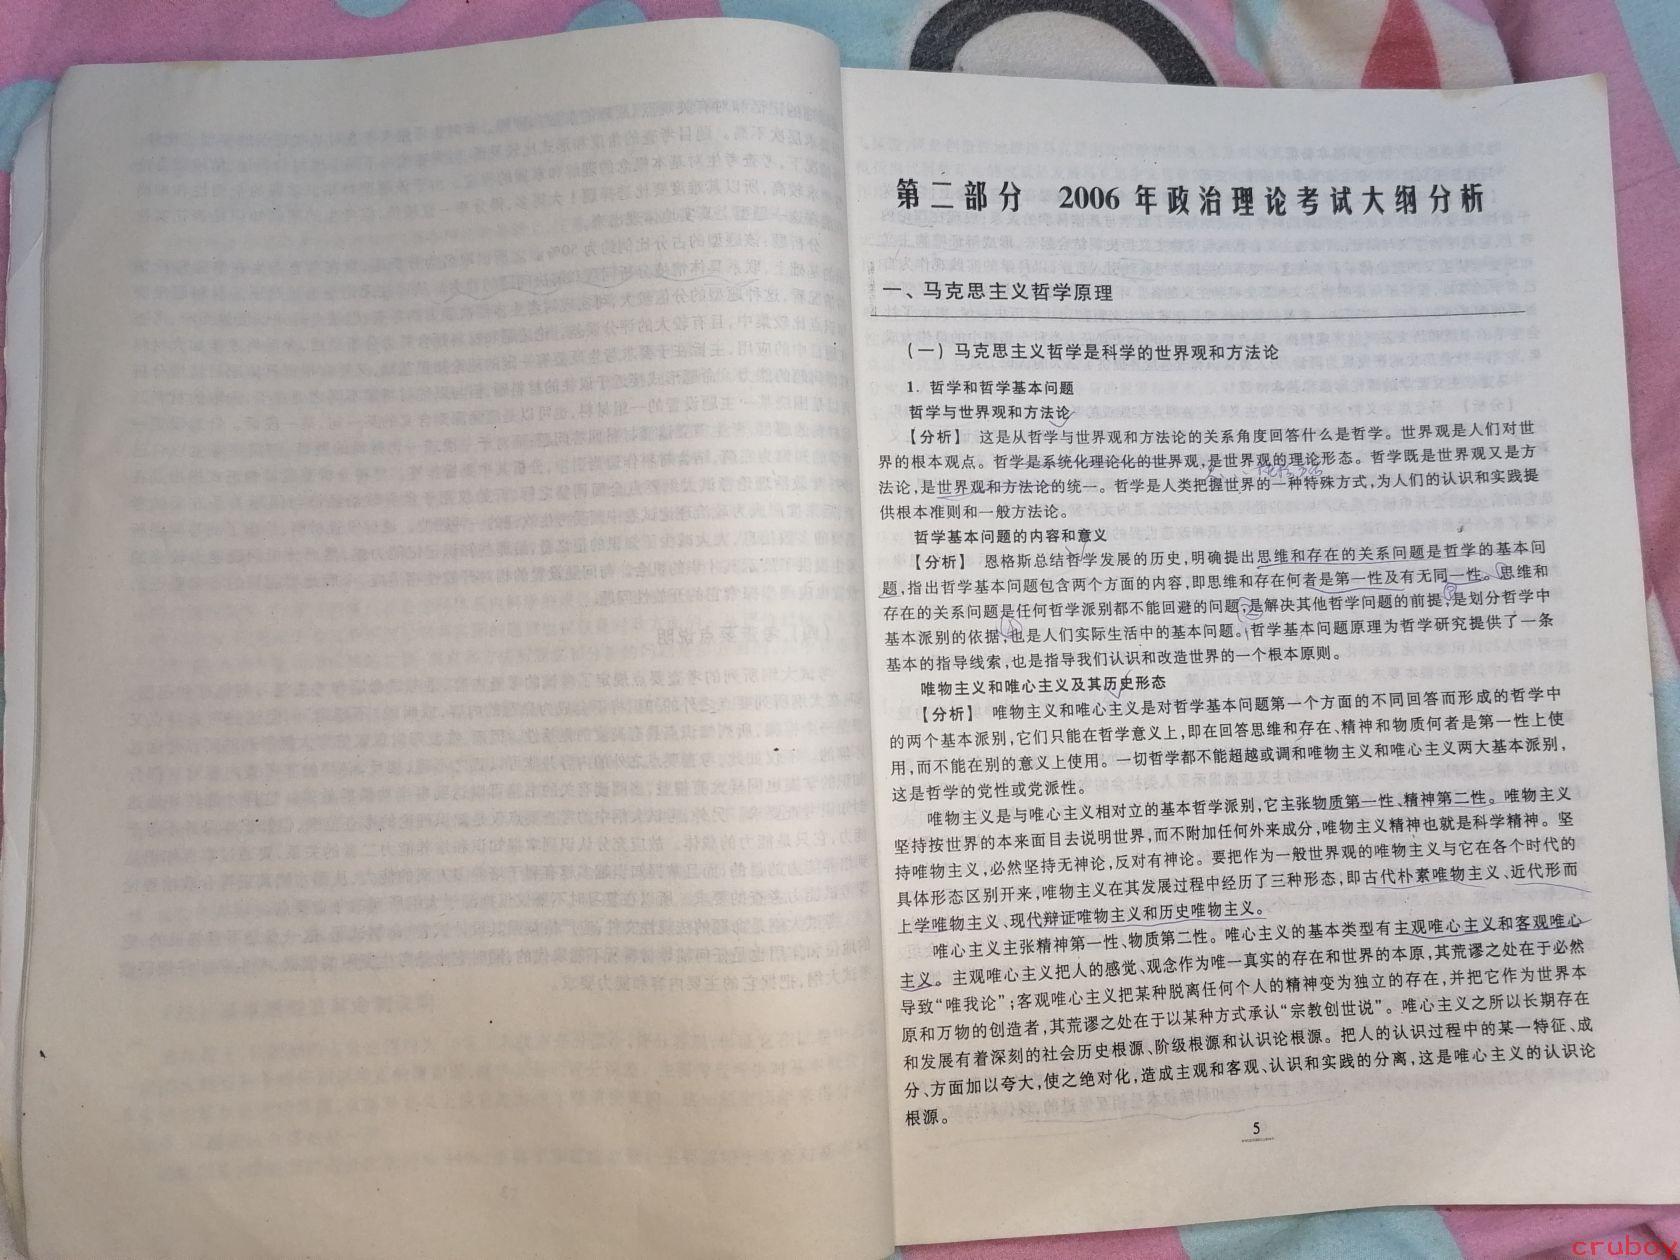 第二部分 2006年政治理论考试大纲分析
一、马克思主义哲学原理
(一)马克思主义哲学是科学的世界观和方法论
1. 哲学和哲学基本问题
哲学与世界观和方法论
【分析】 这是从哲学与世界观和方法论的关系角度回答什么是哲学。世界观是人们对世
界的根本观点。哲学是系统化理论化的世界观,是世界观的理论形态。哲学既是世界观又是方
法论,是世界观和方法论的统一。哲学是人类把握世界的一种特殊方式,为人们的认识和实践提
供根本准则和一般方法论。
哲学基本问题的内容和意义
【分析】 恩格斯总结哲学发展的历史,明确提出思维和存在的关系问题是哲学的基本问
题,指出哲学基本问题包含两个方面的内容,即思维和存在何者是第一性及有无同一性。思维和
存在的关系问题是任何哲学派别都不能回避的问题,是解决其他哲学问题的前提,是划分哲学中
基本派别的依据,也是人们实际生活中的基本问题。哲学基本问题原理为哲学研究提供了一条
基本的指导线索,也是指导我们认识和改造世界的一个根本原则。
唯物主义和唯心主义及其历史形态
【分析】 唯物主义和唯心主义是对哲学基本问题第一个方面的不同回答而形成的哲学中
的两个基本派别,它们只能在哲学意义上,即在回答思维和存在、精神和物质何者是第一性上使
用,而不能在别的意义上使用。一切哲学都不能超越或调和唯物主义和唯心主义两大基本派别,
这是哲学的党性或党派性。
唯物主义是与唯心主义相对立的基本哲学派别,它主张物质第一性、精神第二性。唯物主义
坚持按世界的本来面目去说明世界,而不附加任何外来成分,唯物主义精神也就是科学精神。坚
持唯物主义,必然坚持无神论,反对有神论。要把作为一般世界观的唯物主义与它在各个时代的
具体形态区别开来,唯物主义在其发展过程中经历了三种形态,即古代朴素唯物主义、近代形而
上学唯物主义、现代辩证唯物主义和历史唯物主义。
唯心主义主张精神第一性、物质第二性。唯心主义的基本类型有主观唯心主义和客观唯心
主义。主观唯心主义把人的感觉、观念作为唯一真实的存在和世界的本原,其荒谬之处在于必然
导致“唯我论”;客观唯心主义把某种脱离任何个人的精神变为独立的存在,并把它作为世界本
原和万物的创造者,其荒谬之处在于以某种方式承认“宗教创世说”。唯心主义之所以长期存在
和发展有着深刻的社会历史根源、阶级根源和认识论根源。把人的认识过程中的某一特征、成
分、方面加以夸大,使之绝对化,造成主观和客观、认识和实践的分离,这是唯心主义的认识论
根源。
5
cruboy